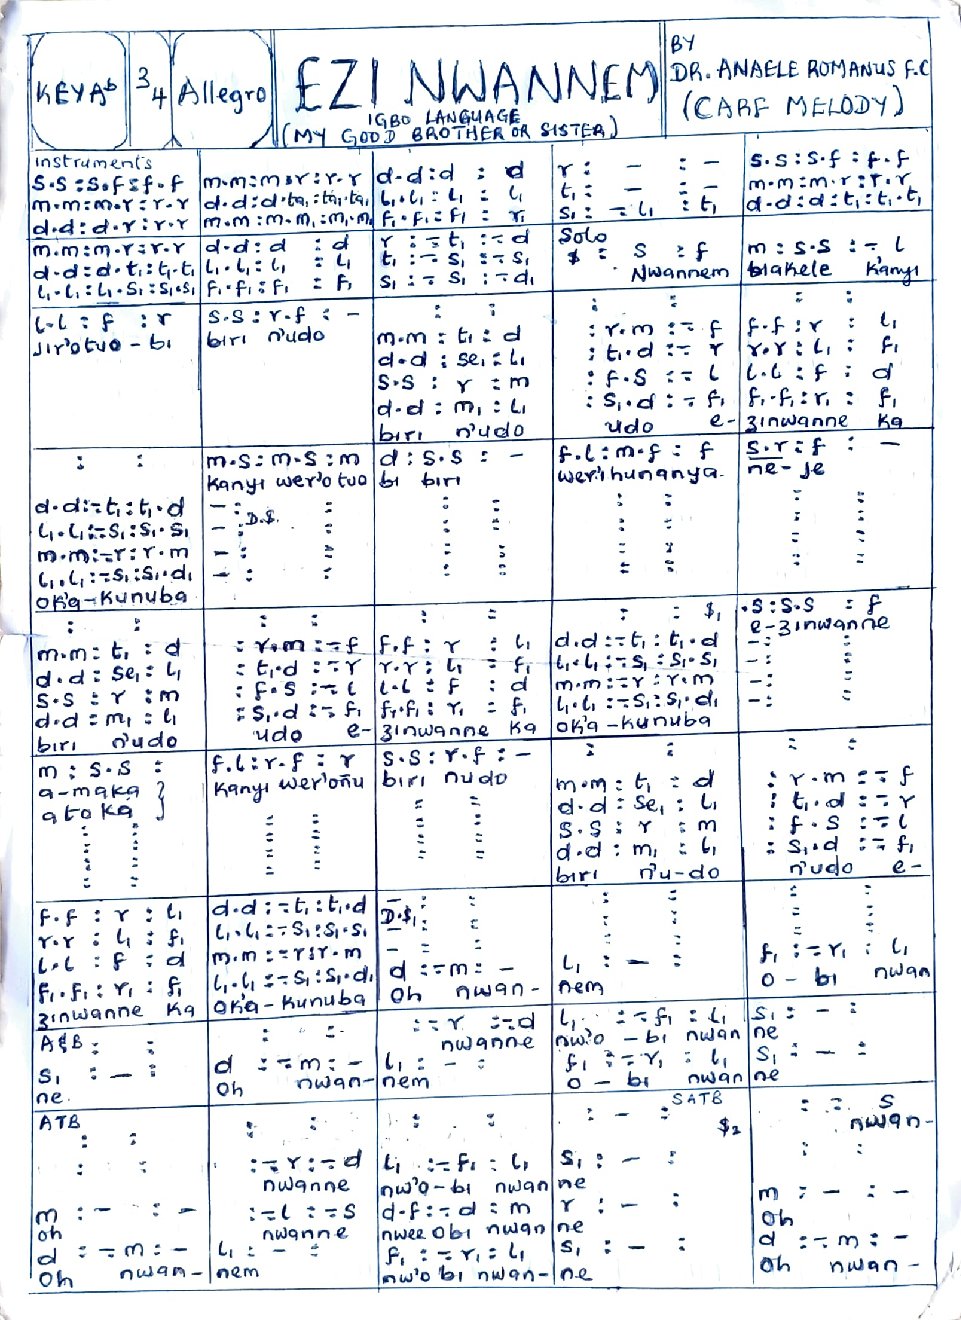 KEY Ab
3/4
Allegro
EZI NWANNEM
IGBO LANGUAGE
(MY GOOD BROTHER OR SISTER)
BY
DR. ANAELE ROMANUS F.C
(CARF MELODY)
instruments
s.s :s.f :f.f
m.m:m.r :r.r
d.d: d.r :r.r
m.m:m.r:r.r
d.d:d.ta₁:ta₁.ta₁
m.m:m.m₁:m₁.m₁
d.d:d : d
l₁.l₁:l₁ : l₁
f₁.f₁:f₁ : r₁
r : - : -
t₁ : - : -
s₁ : -.l₁ : t₁
s.s:s.f :f.f
m.m:m.r :r.r
d.d:d:t₁:t₁.t₁
m.m:m.r:r.r
d.d:d.t₁:t₁.t₁
l₁.l₁:l₁.s₁:s₁.s₁
d.d: d : d
l₁.l₁: l₁ : l₁
f₁.f₁: f₁ : f₁
r :-.t₁ :-.d
t₁ :-.s₁ :-.s₁
s₁ :-.s₁ :-.d₁
Solo
$ : s : f
Nwannem
m : s.s :-.l
biakele kanyi
l.l : f : r
Jir'otuo - bi
s.s : r.f : -
biri n'udo
: :
m.m : t₁ : d
d.d : se₁ : l₁
s.s : r : m
d.d : m₁ : l₁
biri n'udo
: :
: r.m :-.f
: t₁.d :-.r
: f.s :-.l
: s₁.d :-.f₁
udo e-
: :
f.f : r : l₁
r.r : l₁ : f₁
l.l : f : d
f₁.f₁ : r₁ : f₁
zinwanne ka
: :
d.d:-.t₁:t₁.d
l₁.l₁:-.s₁:s₁.s₁
m.m:-.r:r.m
l₁.l₁:-.s₁:s₁.d₁
oka-kunuba
m.s:m.s:m
kanyi wer'otuo
- : :
- : D.$. :
- : :
- : :
d : s.s : -
bi biri
: :
: :
: :
: :
f.l:m.f : f
wer'ihunanya.
: :
: :
: :
: :
s.r : f : -
ne-je
: :
: :
: :
: :
: :
m.m : t₁ : d
d.d : se₁ : l₁
s.s : r : m
d.d : m₁ : l₁
biri n'udo
: :
: r.m :-.f
: t₁.d :-.r
: f.s :-.l
: s₁.d :-.f₁
udo e-
: :
f.f : r : l₁
r.r : l₁ : f₁
l.l : f : d
f₁.f₁ : r₁ : f₁
zinwanne ka
: : $₁
d.d:-.t₁:t₁.d
l₁.l₁:-.s₁:s₁.s₁
m.m:-.r:r.m
l₁.l₁:-.s₁:s₁.d₁
oka-kunuba
.s:s.s : f
e-zinwanne
-: :
-: :
-: :
-: :
m : s.s :
a-maka }
a to ka }
: :
: :
: :
: :
f.l:r.f : r
kanyi wer'oñu
: :
: :
: :
: :
s.s : r.f : -
biri nudo
: :
: :
: :
: :
: :
m.m : t₁ : d
d.d : se₁ : l₁
s.s : r : m
d.d : m₁ : l₁
biri n'u-do
: :
: r.m :-.f
: t₁.d :-.r
: f.s :-.l
: s₁.d :-.f₁
n'udo e-
f.f : r : l₁
r.r : l₁ : f₁
l.l : f : d
f₁.f₁ : r₁ : f₁
zinwanne ka
d.d:-.t₁:t₁.d
l₁.l₁:-.s₁:s₁.s₁
m.m:-.r:r.m
l₁.l₁:-.s₁:s₁.d₁
oka-kunuba
- : :
D.$₁ : :
- : :
d :-.m : -
Oh nwan-
: :
: :
: :
l₁ : - :
nem
: :
: :
: :
f₁ :-.r₁ : l₁
o - bi nwan
A&B : :
s₁ : - :
ne.
: :
d :-.m : -
Oh nwan-
:-.r :-.d
nwanne
l₁ : - :
nem
l₁ :-.f₁ : l₁
nw'o - bi nwan
f₁ :-.r₁ : l₁
o - bi nwan
s₁ : - :
ne
s₁ : - :
ne
ATB
: :
: :
m : - : -
oh
d :-.m : -
Oh nwan-
: :
:-.r :-.d
nwanne
:-.l :-.s
nwanne
l₁ : - :
nem
: :
l₁ :-.f₁ : l₁
nw'o-bi nwan
d.f:-.d : m
nwee obi nwan
f₁ :-.r₁ : l₁
nw'o bi nwan-
SATB
: - :
$₂
s₁ : - :
ne
r : - :
ne
s₁ : - :
ne
: : s
nwan-
m : - : -
Oh
d :-.m : -
Oh nwan-